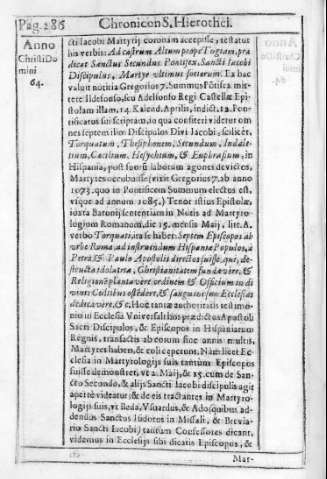 Pag. 286 Chronicon S. Hierothei.
Anno
Christi Do
mini
64.
cti Iacobi Martyrij coronam accepisse, testatur
his verbis: Ad castrum Altum prope Togiam, præ
dicat Sanctus Secundus Pontifex, Sancti Iacobi
Discipulus, Martyr vltimus sociorum. Ex hac
valuit notitia Gregorius 7. Summus Põtifex mit-
tere Ildefonso, seu Adelfonso Regi Castellæ Epi-
stolam illam, 14. Kalend. Aprilis, indict. 12. Pon-
tificatus sui scriptam, in qua confiteri videtur om
nes septem istos Discipulos Diui Iacobi, scilicet,
Torquatum, Thesiphonem, Secundum, Indale-
tium, Cæcilium, Hesychium, & Euphrasium, in
Hispania, post suorũ laborum agones deuictos,
Martyres occubuisse (vixit Gregorius 7. ab anno
1073. quo in Pontificem Summum electus est,
vsque ad annum 1085.) Tenor istius Epistolæ,
iuxta Baronij sententiam in Notis ad Martyro-
logium Romanum, die 15. mensis Maij, lit. A.
verbo Torquati ita se habet: Septem Episcopos ab
vrbe Roma, ad instruendum Hispaniæ Populos, à
Petro & Paulo Apostolis directos fuisse, qui, de-
structa idolatria, Christianitatem fundavere, &
Religionẽ plantavere, ordinem & Officium in di
uinis Cultibus ostẽdere, & sanguine suo Ecclesias
dedicavere, &c. Hoc tantæ authoritatis testimo-
nio in Ecclesia Vniuersali hos prædictos Apostoli
Sacri Discipulos, & Episcopos in Hispaniarum
Regnis, transactis ab eorum sine annis multis,
Martyres habent, & coli ceperunt. Nam licet Ec
clesia in Martyrologijs suis tantum Episcopos
fuisse demonstret, vt 2. Maij, & 15. cum de San-
cto Secundo, & alijs Sancti Iacobi discipulis agit
apertè videatur; & de eis tractantes in Martyro-
logijs suis, vt Beda, Vsuardus, & Ado; quibus ad-
dendus Sanctus Isidorus in Missali, & Brevia-
rio Sancti Iacobi) tantum Confessores dicant,
videmus in Ecclesijs sibi dicatis Episcopos, &
Mar-